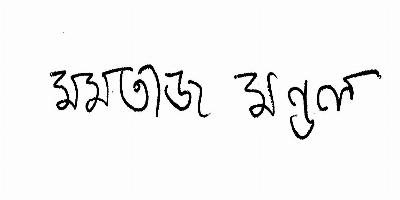 মমতাজ মণ্ডল